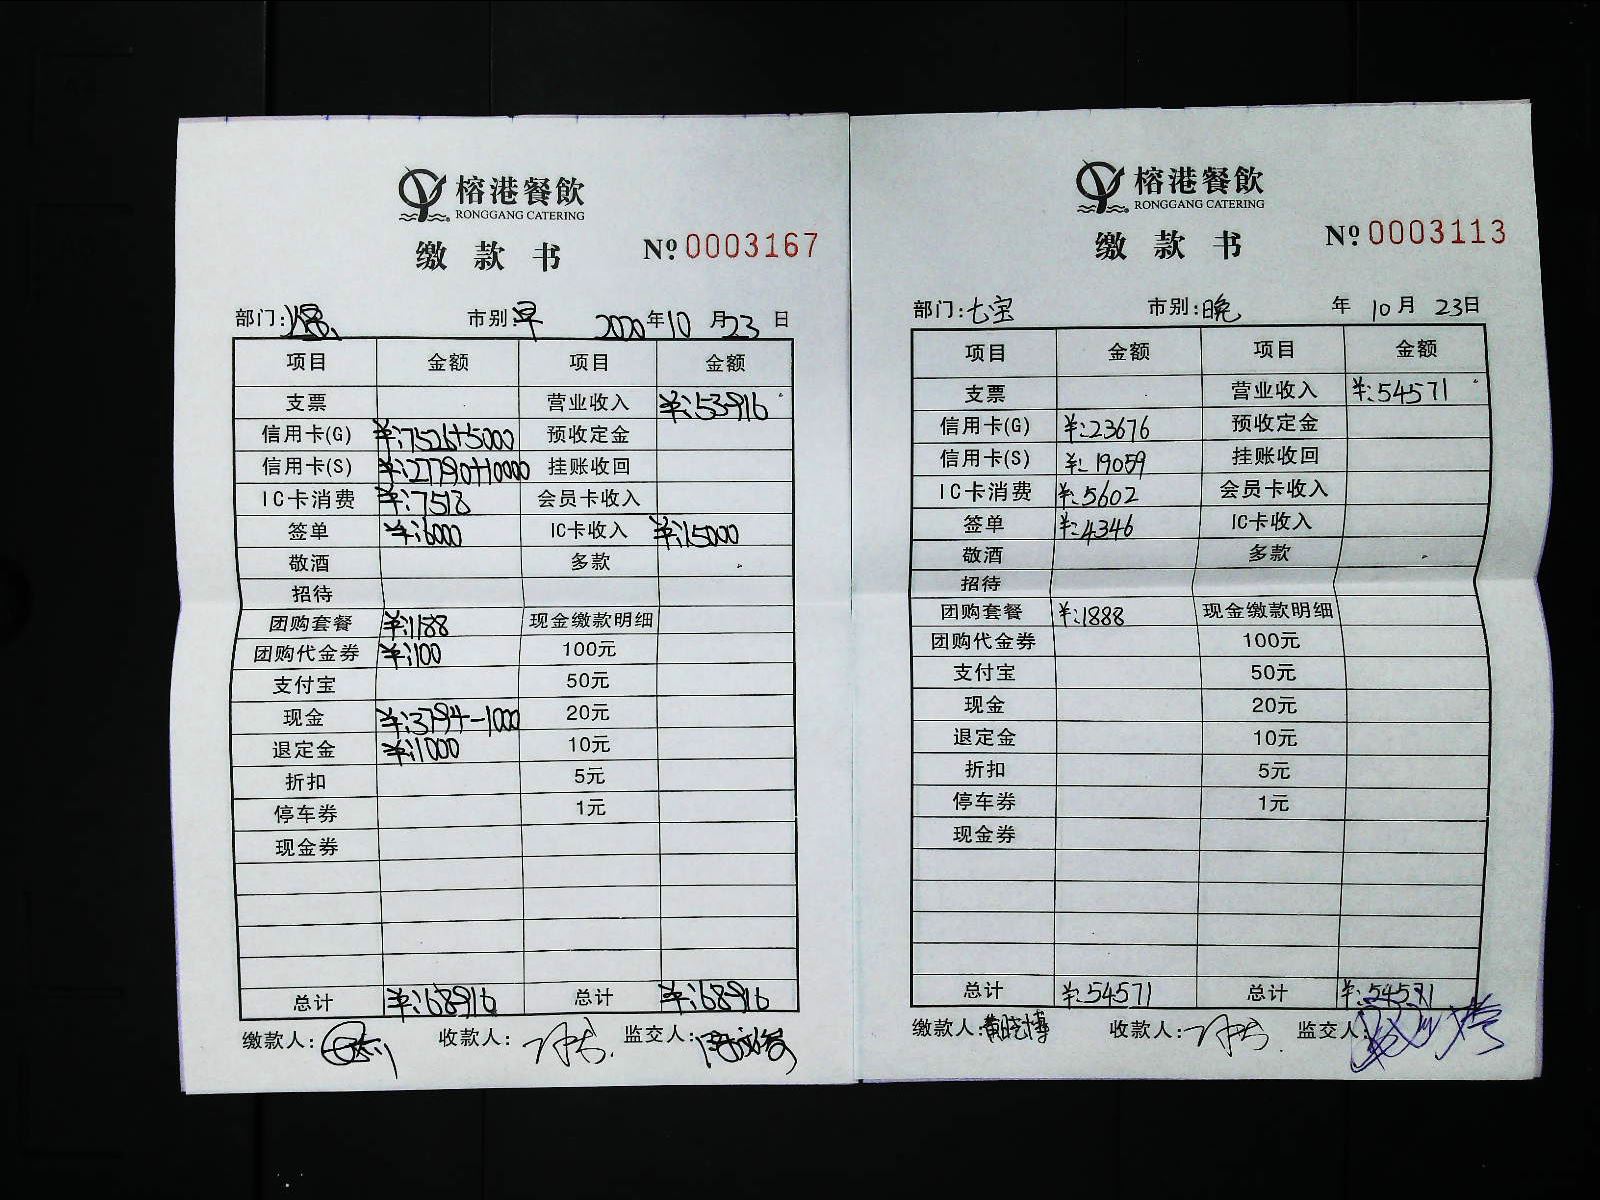 榕港餐飲
RONGGANG CATERING
缴款书
№ 0003167
部门: 市别:早 2020年10月23日
项目 金额 项目 金额
支票 营业收入 ¥:53916
信用卡(G) ¥:7526+5000 预收定金
信用卡(S) ¥:27790+10000 挂账收回
IC卡消费 ¥:7518 会员卡收入
签单 ¥:6000 IC卡收入 ¥:15000
敬酒 多款
招待
团购套餐 ¥:1188 现金缴款明细
团购代金券 ¥:100 100元
支付宝 50元
现金 ¥:3794-1000 20元
退定金 ¥:1000 10元
折扣 5元
停车券 1元
现金券
总计 ¥:68916 总计 ¥:68916
缴款人: 收款人: 监交人:
榕港餐飲
RONGGANG CATERING
缴款书
№ 0003113
部门:七宝 市别:晚 年10月23日
项目 金额 项目 金额
支票 营业收入 ¥:54571
信用卡(G) ¥:23676 预收定金
信用卡(S) ¥:19059 挂账收回
IC卡消费 ¥:5602 会员卡收入
签单 ¥:4346 IC卡收入
敬酒 多款
招待
团购套餐 ¥:1888 现金缴款明细
团购代金券 100元
支付宝 50元
现金 20元
退定金 10元
折扣 5元
停车券 1元
现金券
总计 ¥:54571 总计 ¥:54571
缴款人:黄晓博 收款人: 监交人: